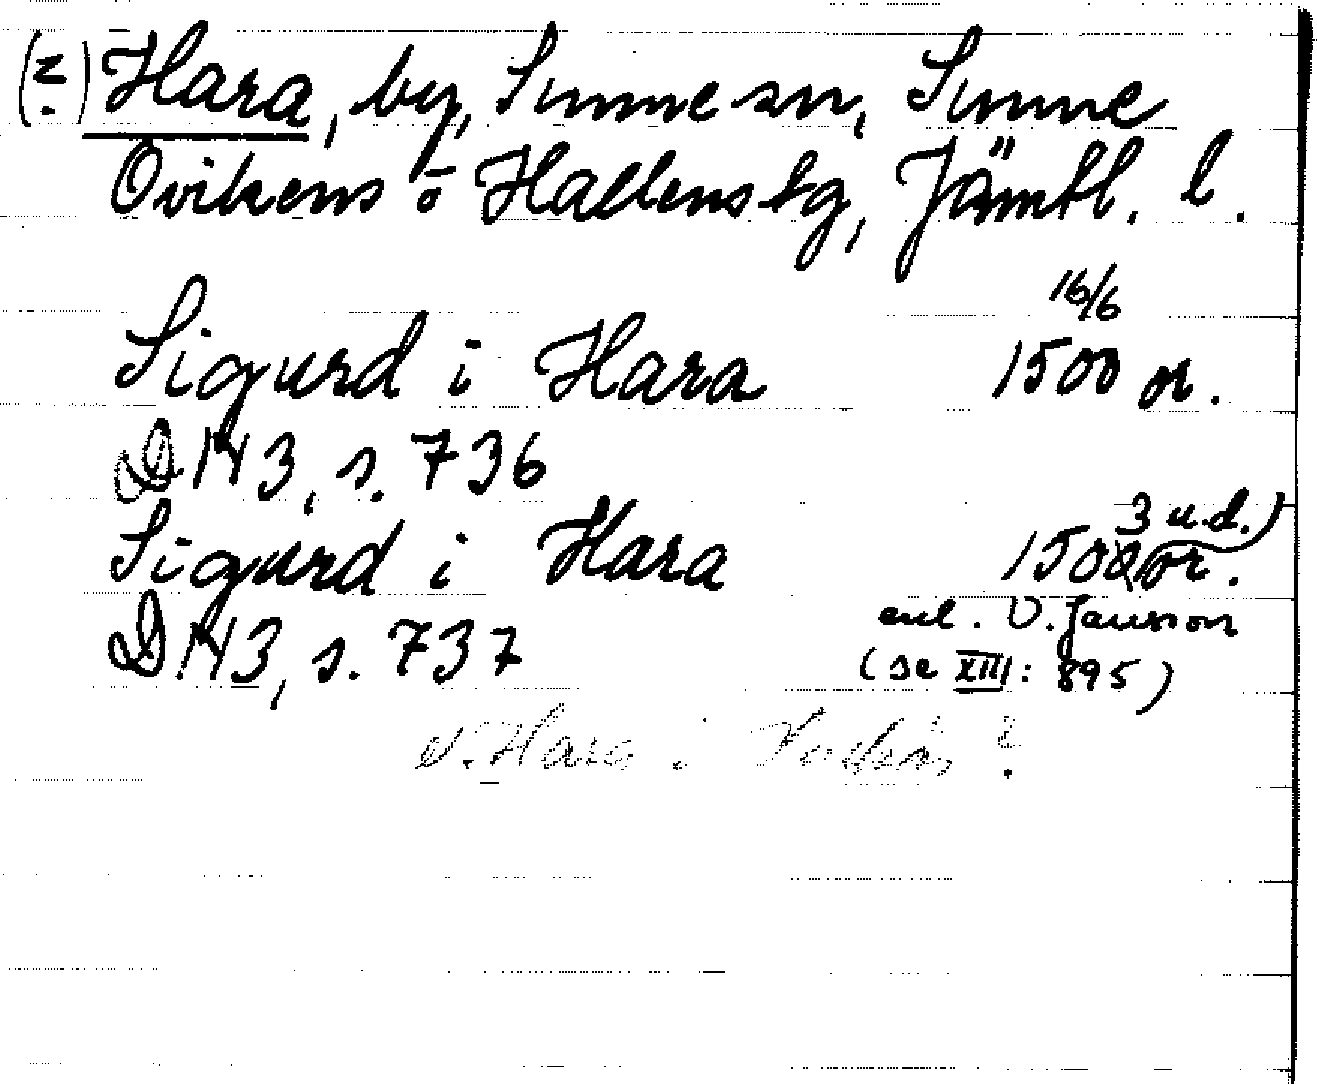 (z.) Hara, by, Sunne sn, Sunne
Ovikens o Hallens tg, Jämtl. l.
16/6
Sigurd i Hara 1500 or.
DN 3, s. 736
3 u.d.)
Sigurd i Hara 1500 or.
DN 3, s. 737 enl. V. Jansson
(se XIII: 895)
Hara i ?